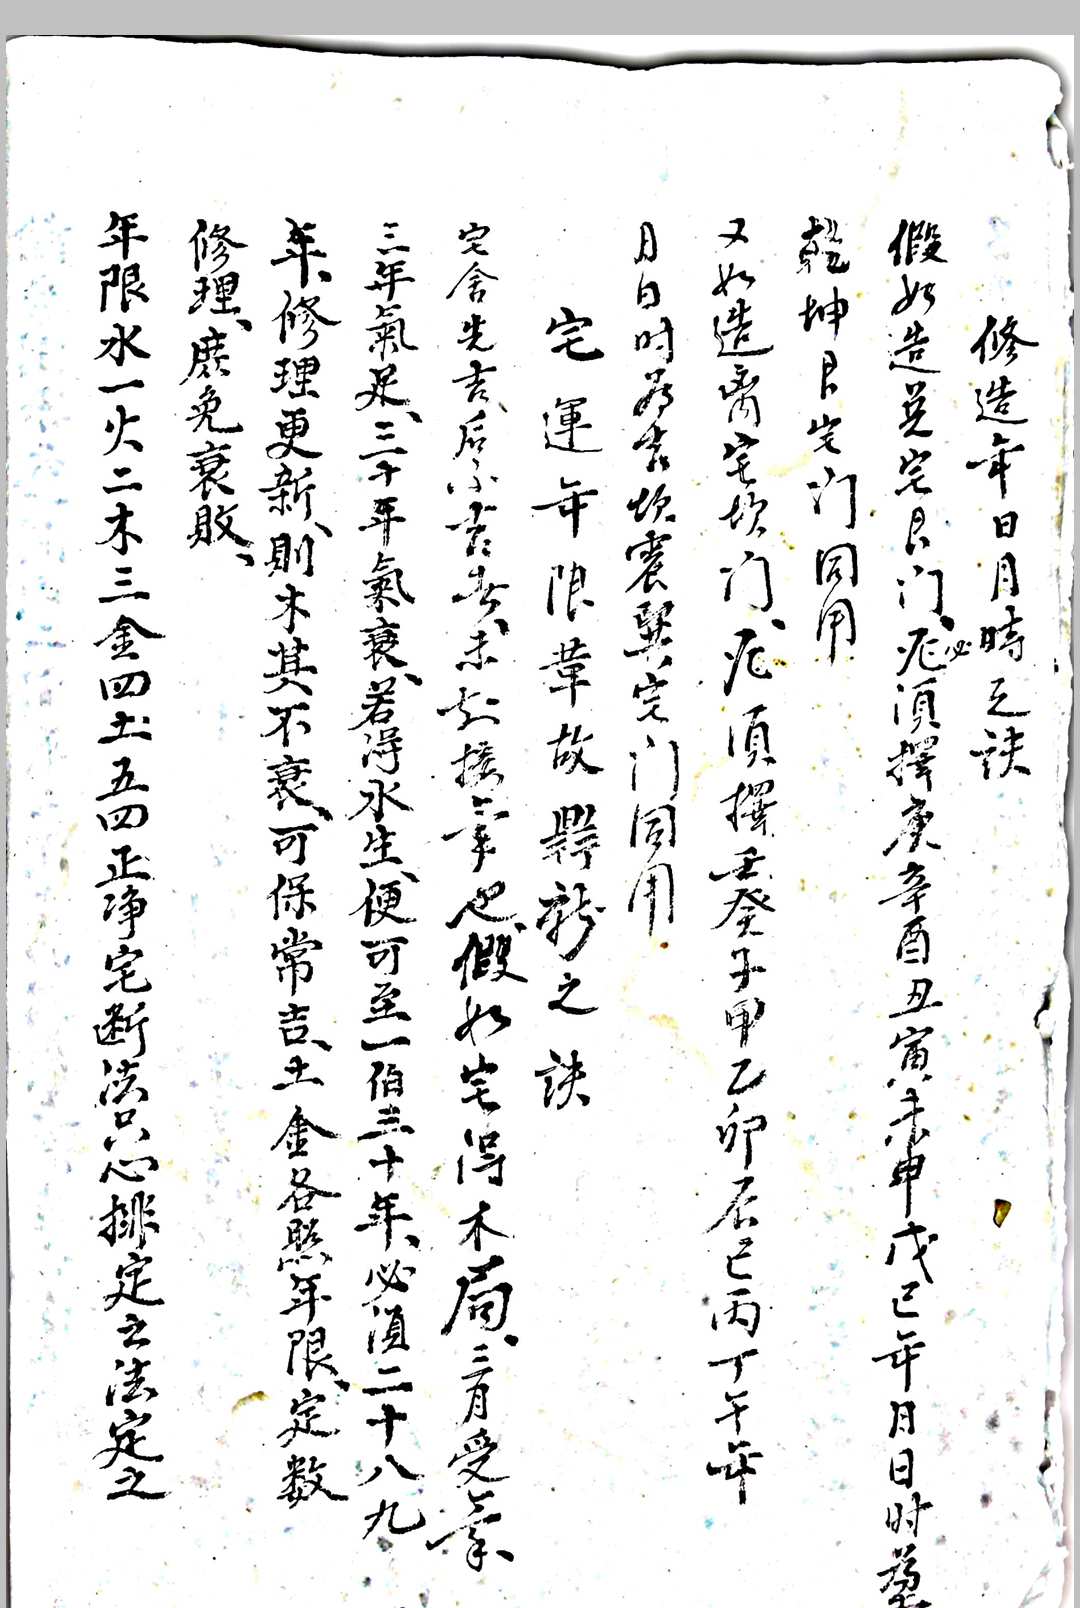 修造年日月時之訣
假如造兑宅艮门、必须擇庚辛酉丑寅未申戊己年月日时为
乾坤艮宅门同用
又如造离宅坎门、须擇壬癸子甲乙卯辰巳丙丁午年
月日时为吉坎震巽宅门同用
宅運年限革故鼎新之訣
宅舍先吉后不吉者、未知接气也、假如宅得木局、三月受气、
三年氣足、三十年氣衰、若得水生、便可至一伯三十年、必須二十八九
年、修理更新、則木其不衰、可保常吉、土金各照年限、定数
修理、庶免衰敗、
年限水一火二木三金四土五四正净宅断法只以排定之法定之